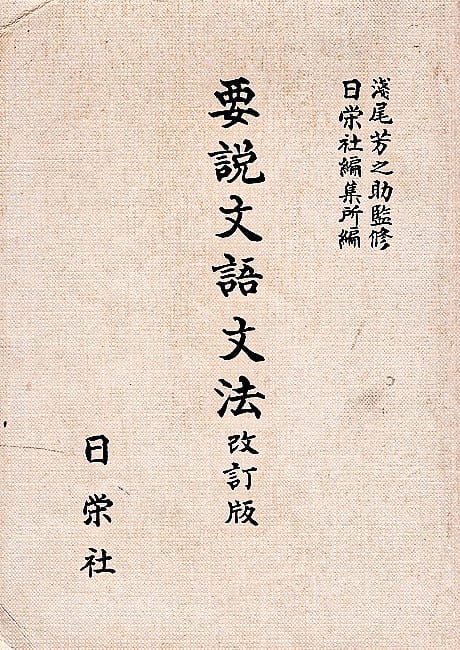 淺尾芳之助監修
日栄社編集所編
要説文語文法改訂版
日栄社